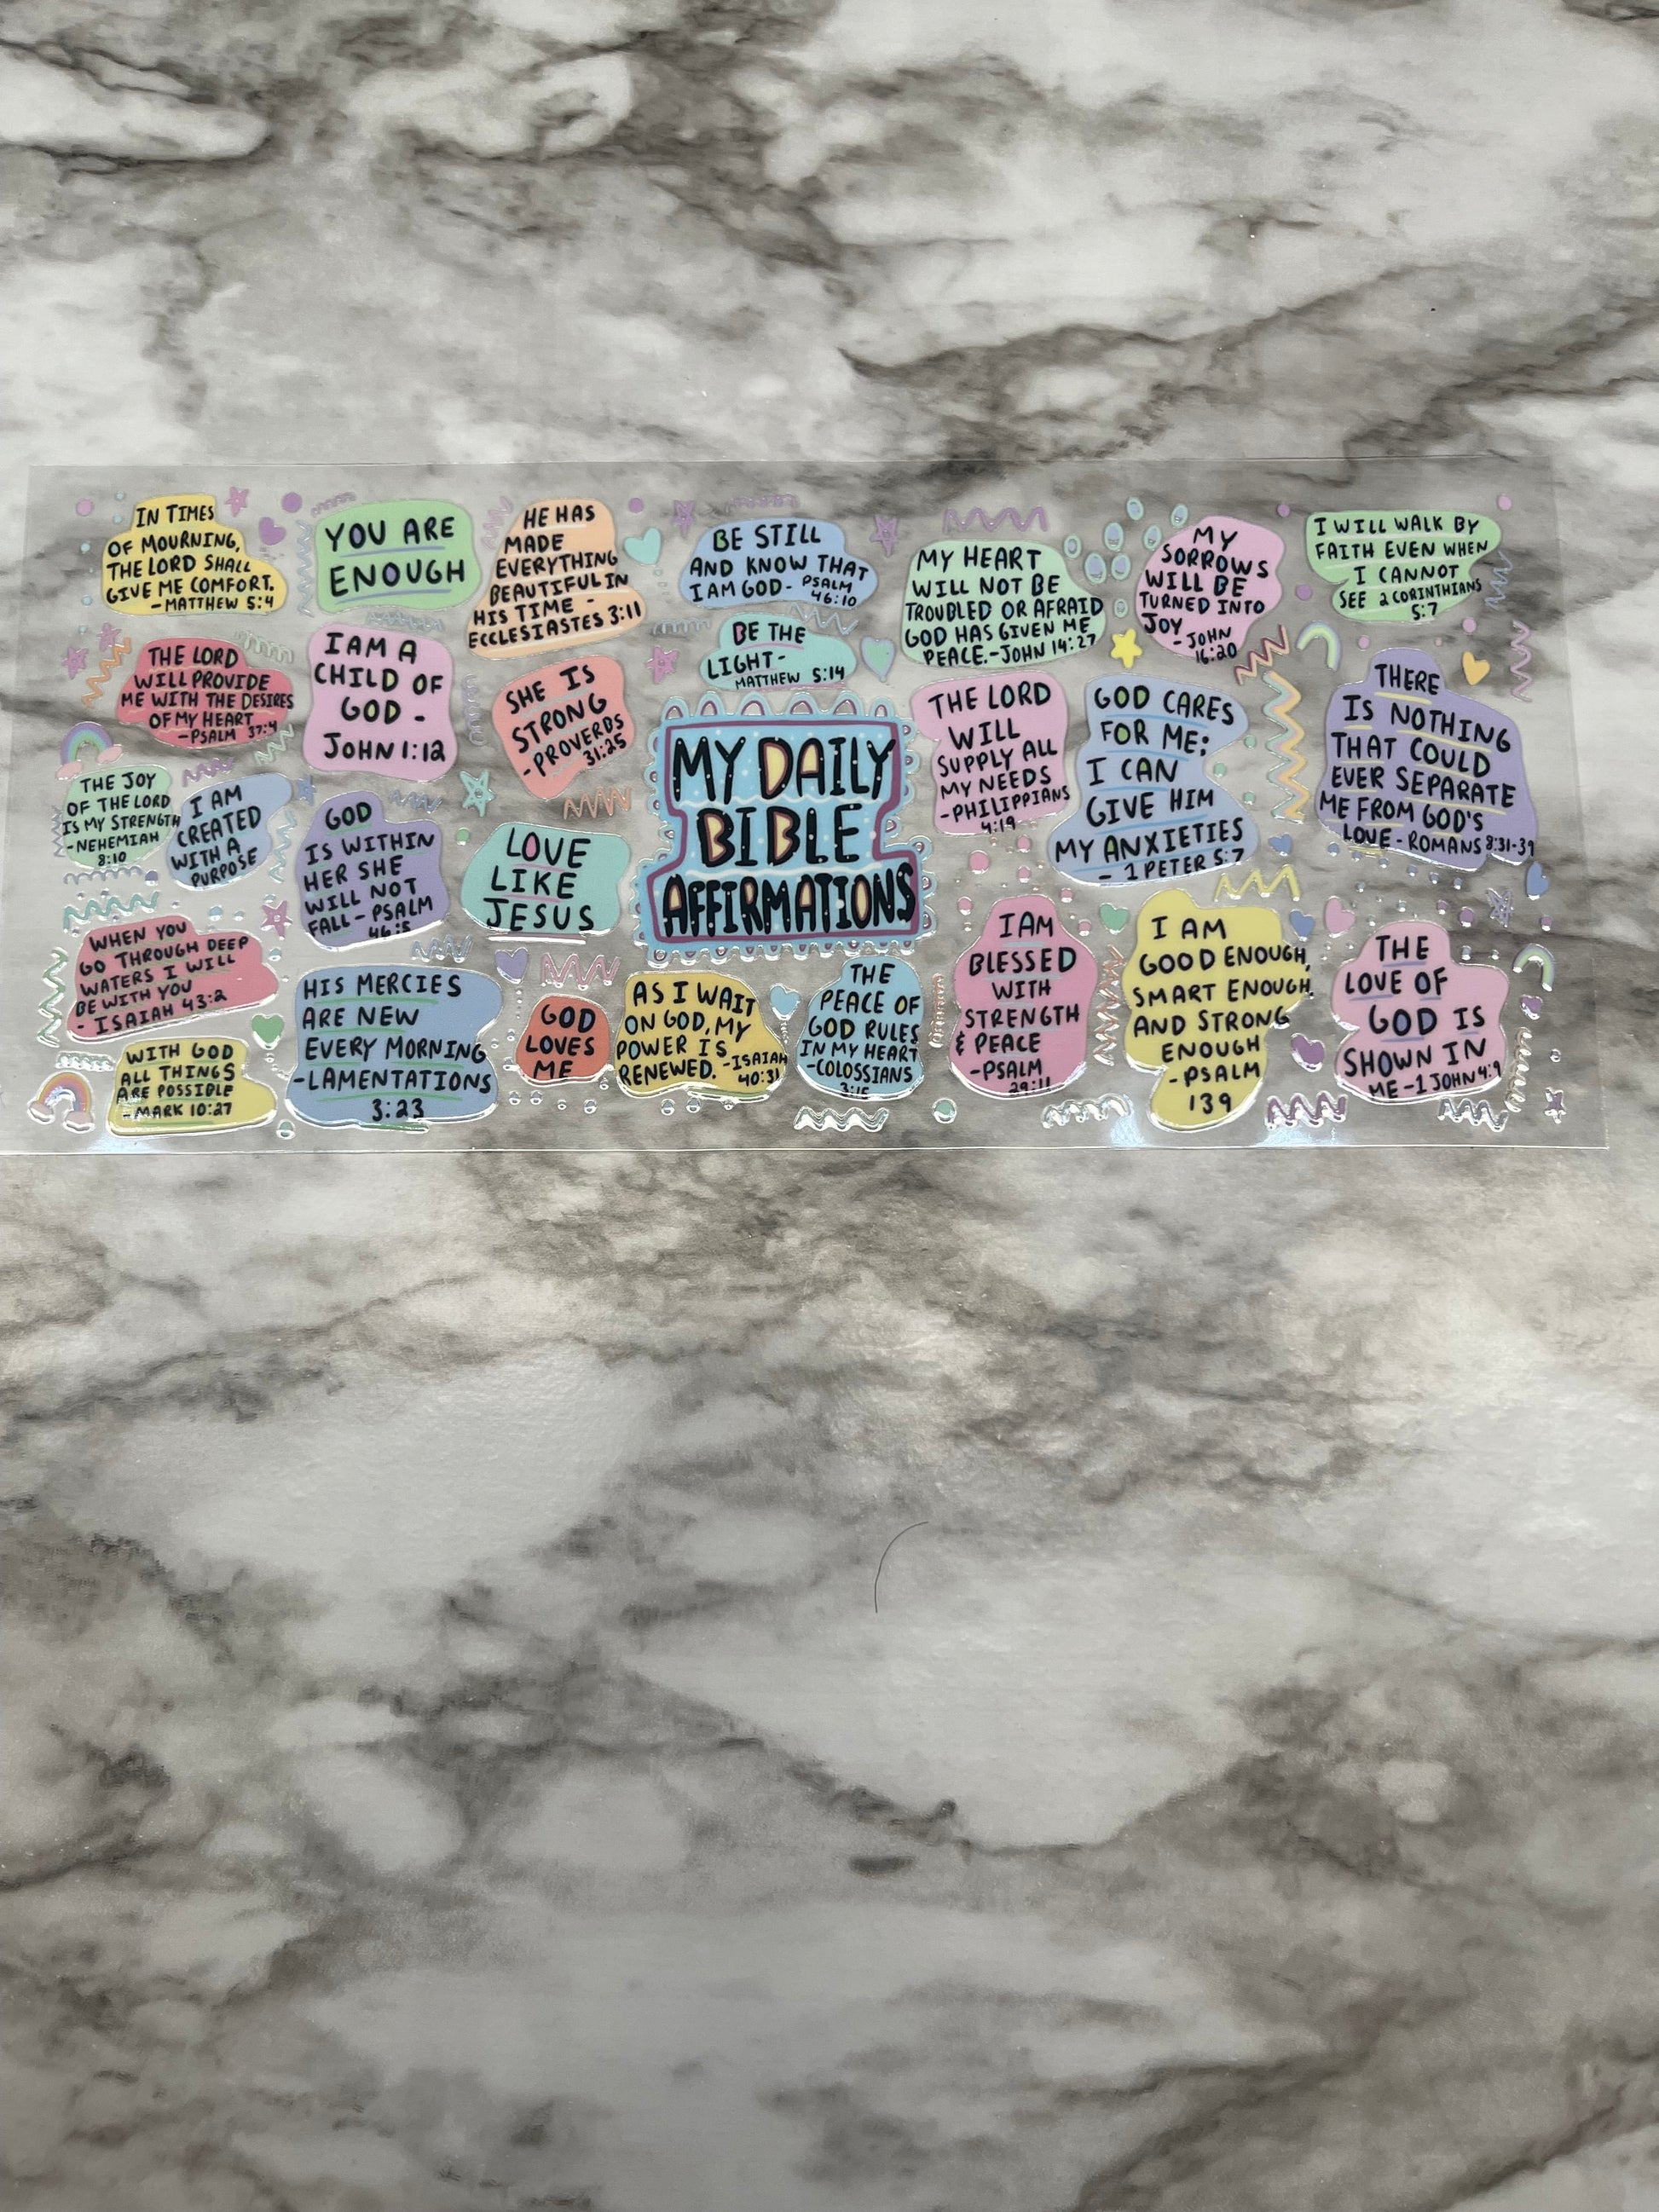 IN TIMES
OF MOURNING,
THE LORD SHALL
GIVE ME COMFORT.
-MATTHEW 5:4
YOU ARE
ENOUGH
HE HAS
MADE
EVERYTHING
BEAUTIFUL IN
HIS TIME -
ECCLESIASTES 3:11
BE STILL
AND KNOW THAT
I AM GOD- PSALM
46:10
MY HEART
WILL NOT BE
TROUBLED OR AFRAID
GOD HAS GIVEN ME
PEACE.-JOHN 14:27
MY
SORROWS
WILL BE
TURNED INTO
JOY
-JOHN
16:20
I WILL WALK BY
FAITH EVEN WHEN
I CANNOT
SEE 2 CORINTHIANS
5:7
THE LORD
WILL PROVIDE
ME WITH THE DESIRES
OF MY HEART
-PSALM 37:4
I AM A
CHILD OF
GOD -
JOHN 1:12
SHE IS
STRONG
-PROVERBS
31:25
BE THE
LIGHT-
MATTHEW 5:14
MY DAILY
BIBLE
AFFIRMATIONS
THE LORD
WILL
SUPPLY ALL
MY NEEDS
-PHILIPPIANS
4:19
GOD CARES
FOR ME;
I CAN
GIVE HIM
MY ANXIETIES
- 1 PETER 5:7
THERE
IS NOTHING
THAT COULD
EVER SEPARATE
ME FROM GOD'S
LOVE - ROMANS 8:31-39
THE JOY
OF THE LORD
IS MY STRENGTH
-NEHEMIAH
8:10
I AM
CREATED
WITH A
PURPOSE
GOD
IS WITHIN
HER SHE
WILL NOT
FALL - PSALM
46:5
LOVE
LIKE
JESUS
WHEN YOU
GO THROUGH DEEP
WATERS I WILL
BE WITH YOU
- ISAIAH 43:2
HIS MERCIES
ARE NEW
EVERY MORNING
-LAMENTATIONS
3:23
GOD
LOVES
ME
AS I WAIT
ON GOD, MY
POWER IS
RENEWED. -ISAIAH
40:31
THE
PEACE OF
GOD RULES
IN MY HEART
-COLOSSIANS
3:15
I AM
BLESSED
WITH
STRENGTH
& PEACE
-PSALM
29:11
I AM
GOOD ENOUGH,
SMART ENOUGH,
AND STRONG
ENOUGH
-PSALM
139
THE
LOVE OF
GOD IS
SHOWN IN
ME -1 JOHN 4:9
WITH GOD
ALL THINGS
ARE POSSIBLE
-MARK 10:27